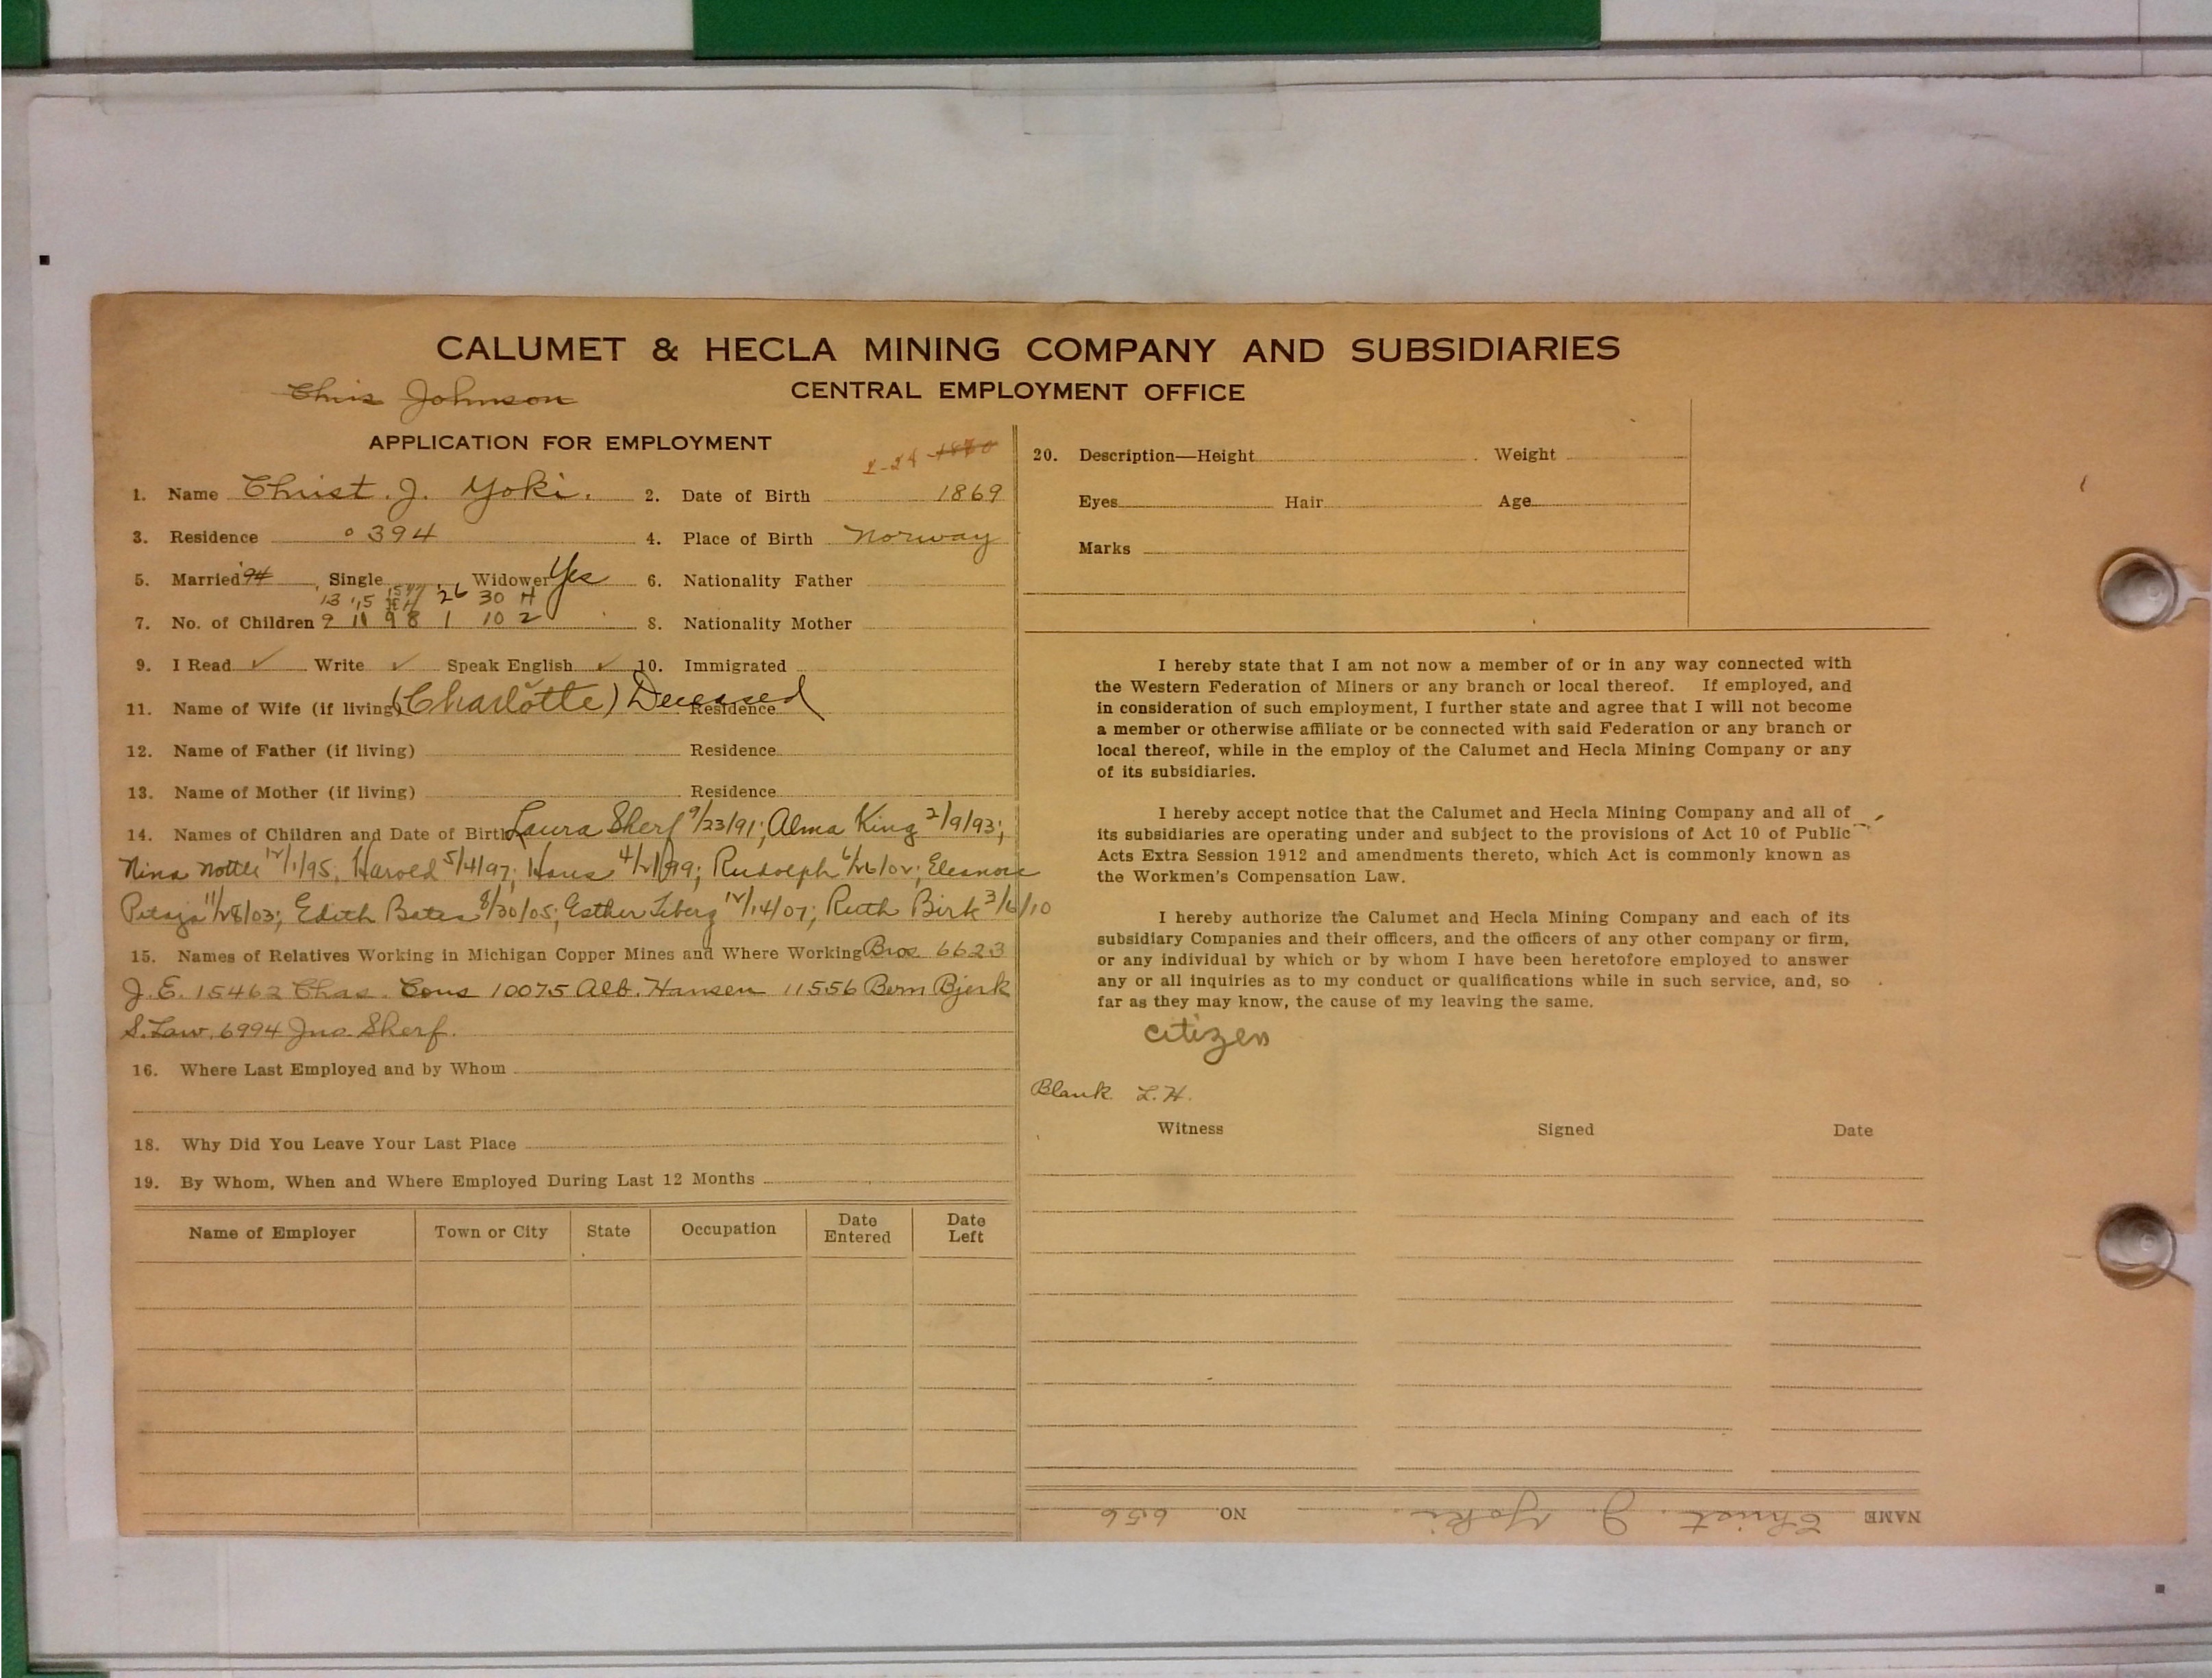 CALUMET & HECLA MINING COMPANY AND SUBSIDIARIES
CENTRAL EMPLOYMENT OFFICE
Chris Johnson
APPLICATION FOR EMPLOYMENT
1. Name Christ. J. Yoki. 2. Date of Birth 2-24-1870 1869
3. Residence 0394 4. Place of Birth Norway
5. Married '94 Single Widower Yes 6. Nationality Father
'13 '15 26 30 H
7. No. of Children 9 11 9 8 1 10 2 8. Nationality Mother
9. I Read ✓ Write ✓ Speak English ✓ 10. Immigrated
11. Name of Wife (if living) (Charlotte) Deceased Residence
12. Name of Father (if living) Residence
13. Name of Mother (if living) Residence
14. Names of Children and Date of Birth Laura Sherf 9/23/91; Alma King 2/9/93;
Nina Nottle 12/1/95, Harold 5/4/97; Hans 4/21/99; Rudolph 6/26/02; Eleanore
Petaja 11/28/03; Edith Bates 8/30/05; Esther Liberg 12/14/07; Ruth Birk 3/6/10
15. Names of Relatives Working in Michigan Copper Mines and Where Working Bros. 6623
J.E. 15462 Chas. Cous 10075 Alb. Hansen 11556 Bern Bjerk
S. Law. 6994 Jno. Sherf.
16. Where Last Employed and by Whom
18. Why Did You Leave Your Last Place
19. By Whom, When and Where Employed During Last 12 Months
Name of Employer Town or City State Occupation Date Entered Date Left
20. Description—Height Weight
Eyes Hair Age
Marks
I hereby state that I am not now a member of or in any way connected with
the Western Federation of Miners or any branch or local thereof. If employed, and
in consideration of such employment, I further state and agree that I will not become
a member or otherwise affiliate or be connected with said Federation or any branch or
local thereof, while in the employ of the Calumet and Hecla Mining Company or any
of its subsidiaries.
I hereby accept notice that the Calumet and Hecla Mining Company and all of
its subsidiaries are operating under and subject to the provisions of Act 10 of Public
Acts Extra Session 1912 and amendments thereto, which Act is commonly known as
the Workmen's Compensation Law.
I hereby authorize the Calumet and Hecla Mining Company and each of its
subsidiary Companies and their officers, and the officers of any other company or firm,
or any individual by which or by whom I have been heretofore employed to answer
any or all inquiries as to my conduct or qualifications while in such service, and, so
far as they may know, the cause of my leaving the same.
citizen
Blank L.H.
Witness Signed Date
NAME Christ. J. Yoki. NO. 656